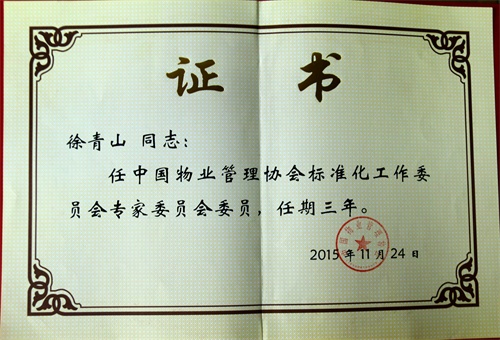 证书
徐青山 同志：
任中国物业管理协会标准化工作委
员会专家委员会委员，任期三年。
2015年11月24日